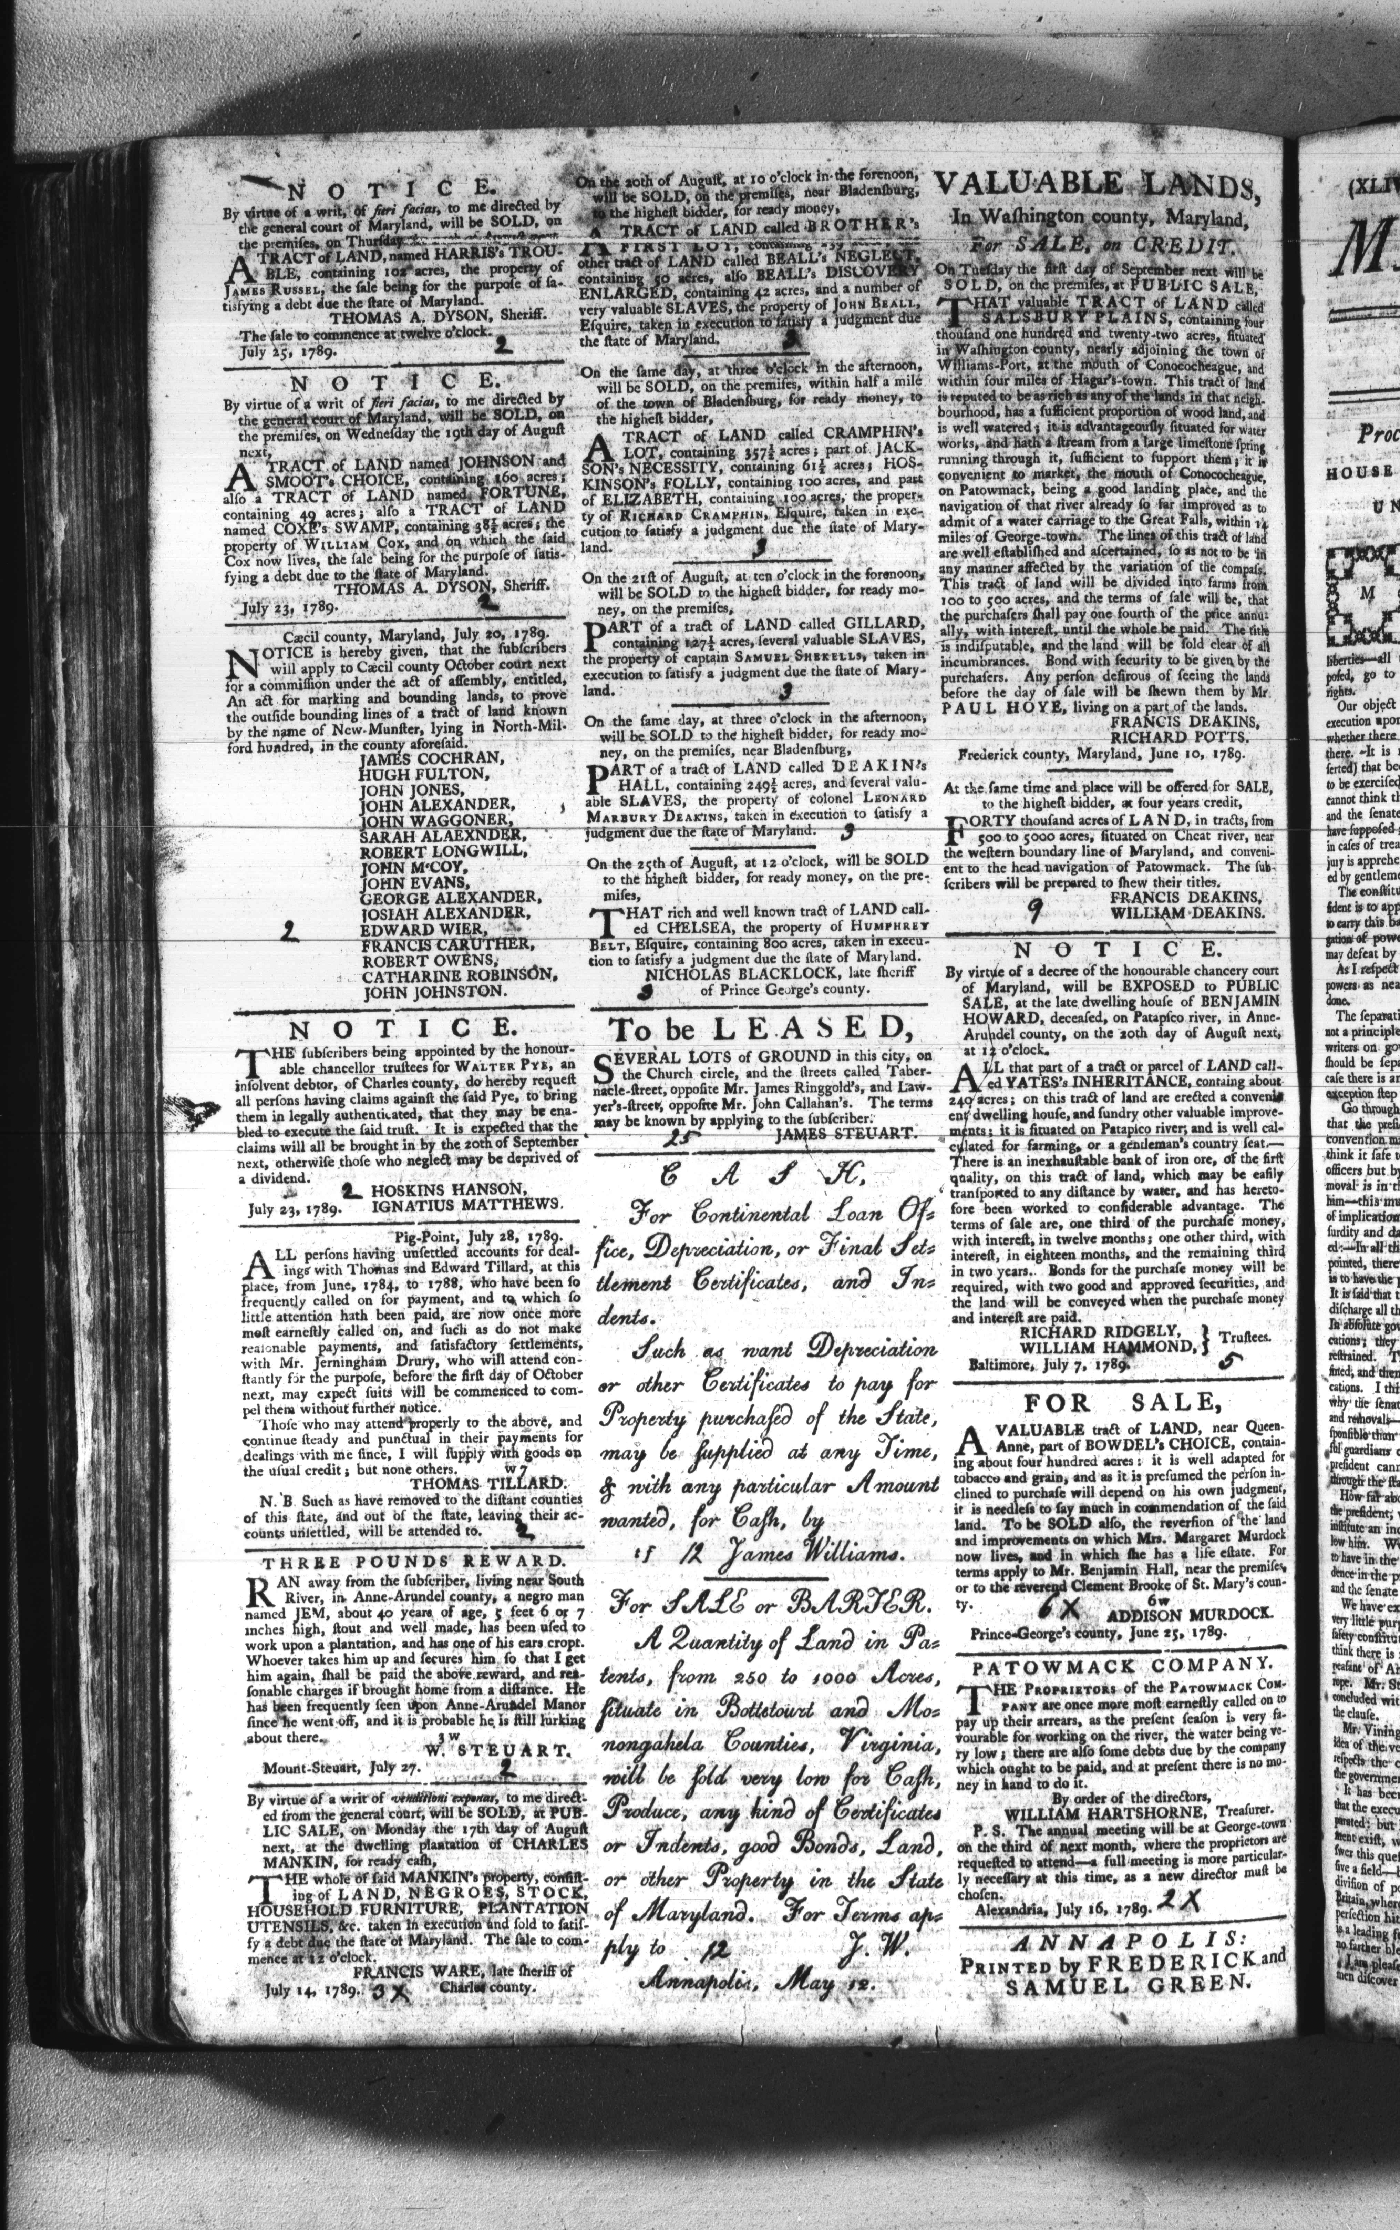 N O T I C E.
By virtue of a writ, of fieri facias, to me directed by
the general court of Maryland, will be SOLD, on
the premises, on Thursday
A TRACT of LAND, named HARRIS's TROU-
BLE, containing 102 acres, the property of
JAMES RUSSEL, the sale being for the purpose of sa-
tisfying a debt due the state of Maryland.
THOMAS A. DYSON, Sheriff.
The sale to commence at twelve o'clock.
July 25, 1789. 2
N O T I C E.
By virtue of a writ of fieri facias, to me directed by
the general court of Maryland, will be SOLD, on
the premises, on Wednesday the 19th day of August
next,
A TRACT of LAND named JOHNSON and
SMOOT's CHOICE, containing 160 acres;
also a TRACT of LAND named FORTUNE,
containing 49 acres; also a TRACT of LAND
named COXE's SWAMP, containing 38½ acres; the
property of WILLIAM COX, and on which the said
Cox now lives, the sale being for the purpose of satis-
fying a debt due to the state of Maryland.
THOMAS A. DYSON, Sheriff.
July 23, 1789. 2
Cæcil county, Maryland, July 20, 1789.
NOTICE is hereby given, that the subscribers
will apply to Cæcil county October court next
for a commission under the act of assembly, entitled,
An act for marking and bounding lands, to prove
the outside bounding lines of a tract of land known
by the name of New-Munster, lying in North-Mil-
ford hundred, in the county aforesaid.
JAMES COCHRAN,
HUGH FULTON,
JOHN JONES,
JOHN ALEXANDER,
JOHN WAGGONER,
SARAH ALAEXNDER,
ROBERT LONGWILL,
JOHN M'COY,
JOHN EVANS,
GEORGE ALEXANDER,
JOSIAH ALEXANDER,
2 EDWARD WIER,
FRANCIS CARUTHER,
ROBERT OWENS,
CATHARINE ROBINSON,
JOHN JOHNSTON.
N O T I C E.
THE subscribers being appointed by the honour-
able chancellor trustees for WALTER PYE, an
insolvent debtor, of Charles county, do hereby request
all persons having claims against the said Pye, to bring
them in legally authenticated, that they may be ena-
bled to execute the said trust. It is expected that the
claims will all be brought in by the 20th of September
next, otherwise those who neglect may be deprived of
a dividend.
2 HOSKINS HANSON,
July 23, 1789. IGNATIUS MATTHEWS.
Pig-Point, July 28, 1789.
ALL persons having unsettled accounts for deal-
ings with Thomas and Edward Tillard, at this
place, from June, 1784, to 1788, who have been so
frequently called on for payment, and to which so
little attention hath been paid, are now once more
most earnestly called on, and such as do not make
reasonable payments, and satisfactory settlements,
with Mr. Jerningham Drury, who will attend con-
stantly for the purpose, before the first day of October
next, may expect suits will be commenced to com-
pel them without further notice.
Those who may attend properly to the above, and
continue steady and punctual in their payments for
dealings with me since, I will supply with goods on
the usual credit; but none others. w 7
THOMAS TILLARD.
N. B. Such as have removed to the distant counties
of this state, and out of the state, leaving their ac-
counts unsettled, will be attended to. 2
THREE POUNDS REWARD.
RAN away from the subscriber, living near South
River, in Anne-Arundel county, a negro man
named JEM, about 40 years of age, 5 feet 6 or 7
inches high, stout and well made, has been used to
work upon a plantation, and has one of his ears cropt.
Whoever takes him up and secures him so that I get
him again, shall be paid the above reward, and rea-
sonable charges if brought home from a distance. He
has been frequently seen upon Anne-Arundel Manor
since he went off, and it is probable he is still lurking
about there. 3 w
W. STEUART.
Mount-Steuart, July 27. 2
By virtue of a writ of venditioni exponas, to me direct-
ed from the general court, will be SOLD, at PUB-
LIC SALE, on Monday the 17th day of August
next, at the dwelling plantation of CHARLES
MANKIN, for ready cash,
THE whole of said MANKIN's property, consist-
ing of LAND, NEGROES, STOCK,
HOUSEHOLD FURNITURE, PLANTATION
UTENSILS, &c. taken in execution and sold to satis-
fy a debt due the state of Maryland. The sale to com-
mence at 12 o'clock.
FRANCIS WARE, late sheriff of
July 14, 1789. 3 X Charles county.
On the 20th of August, at 10 o'clock in the forenoon,
will be SOLD, on the premises, near Bladensburg,
to the highest bidder, for ready money,
A TRACT of LAND called BROTHER's
FIRST LOT, containing
other tract of LAND called BEALL's NEGLECT,
containing 50 acres, also BEALL's DISCOVERY
ENLARGED, containing 42 acres, and a number of
very valuable SLAVES, the property of JOHN BEALL,
Esquire, taken in execution to satisfy a judgment due
the state of Maryland. 3
On the same day, at three o'clock in the afternoon,
will be SOLD, on the premises, within half a mile
of the town of Bladensburg, for ready money, to
the highest bidder,
A TRACT of LAND called CRAMPHIN's
LOT, containing 357½ acres; part of JACK-
SON's NECESSITY, containing 61½ acres; HOS-
KINSON's FOLLY, containing 100 acres, and past
of ELIZABETH, containing 100 acres, the proper-
ty of RICHARD CRAMPHIN, Esquire, taken in exe-
cution to satisfy a judgment due the state of Mary-
land. 3
On the 21st of August, at ten o'clock in the forenoon,
will be SOLD to the highest bidder, for ready mo-
ney, on the premises,
PART of a tract of LAND called GILLARD,
containing 127½ acres, several valuable SLAVES,
the property of captain SAMUEL SHEKELLS, taken in
execution to satisfy a judgment due the state of Mary-
land. 3
On the same day, at three o'clock in the afternoon,
will be SOLD to the highest bidder, for ready mo-
ney, on the premises, near Bladensburg,
PART of a tract of LAND called DEAKIN's
HALL, containing 249½ acres, and several valu-
able SLAVES, the property of colonel LEONARD
MARBURY DEAKINS, taken in execution to satisfy a
judgment due the state of Maryland. 3
On the 25th of August, at 12 o'clock, will be SOLD
to the highest bidder, for ready money, on the pre-
mises,
THAT rich and well known tract of LAND call-
ed CHELSEA, the property of HUMPHREY
BELT, Esquire, containing 800 acres, taken in execu-
tion to satisfy a judgment due the state of Maryland.
NICHOLAS BLACKLOCK, late sheriff
3 of Prince George's county.
To be LEASED,
SEVERAL LOTS of GROUND in this city, on
the Church circle, and the streets called Taber-
nacle-street, opposite Mr. James Ringgold's, and Law-
yer's-street, opposite Mr. John Callahan's. The terms
may be known by applying to the subscriber.
25 JAMES STEUART.
C A S H,
For Continental Loan Of-
fice, Depreciation, or Final Set-
tlement Certificates, and In-
dents.
Such as want Depreciation
or other Certificates to pay for
Property purchased of the State,
may be supplied at any Time,
& with any particular Amount
wanted, for Cash, by
12 James Williams.
For SALE or BARTER.
A Quantity of Land in Pa-
tents, from 250 to 1000 Acres,
situate in Bottetourt and Mo-
nongahela Counties, Virginia,
will be sold very low for Cash,
Produce, any kind of Certificates
or Indents, good Bonds, Land,
or other Property in the State
of Maryland. For Terms ap-
ply to 12 J. W.
Annapolis, May 12.
VALUABLE LANDS,
In Washington county, Maryland,
For SALE, on CREDIT.
On Tuesday the first day of September next will be
SOLD, on the premises, at PUBLIC SALE,
THAT valuable TRACT of LAND called
SALSBURY PLAINS, containing four
thousand one hundred and twenty-two acres, situated
in Washington county, nearly adjoining the town of
Williams-Port, at the mouth of Conococheague, and
within four miles of Hagar's-town. This tract of land
is reputed to be as rich as any of the lands in that neigh-
bourhood, has a sufficient proportion of wood land, and
is well watered; it is advantageously situated for water
works, and hath a stream from a large limestone spring
running through it, sufficient to support them; it is
convenient to market, the mouth of Conococheague,
on Patowmack, being a good landing place, and the
navigation of that river already so far improved as to
admit of a water carriage to the Great Falls, within 14
miles of George-town. The lines of this tract of land
are well established and ascertained, so as not to be in
any manner affected by the variation of the compass.
This tract of land will be divided into farms from
100 to 500 acres, and the terms of sale will be, that
the purchasers shall pay one fourth of the price annu-
ally, with interest, until the whole be paid. The title
is indisputable, and the land will be sold clear of all
incumbrances. Bond with security to be given by the
purchasers. Any person desirous of seeing the lands
before the day of sale will be shewn them by Mr.
PAUL HOYE, living on a part of the lands.
FRANCIS DEAKINS,
RICHARD POTTS.
Frederick county, Maryland, June 10, 1789.
At the same time and place will be offered for SALE,
to the highest bidder, at four years credit,
FORTY thousand acres of LAND, in tracts, from
500 to 5000 acres, situated on Cheat river, near
the western boundary line of Maryland, and conveni-
ent to the head navigation of Patowmack. The sub-
scribers will be prepared to shew their titles.
FRANCIS DEAKINS,
9 WILLIAM DEAKINS.
N O T I C E.
By virtue of a decree of the honourable chancery court
of Maryland, will be EXPOSED to PUBLIC
SALE, at the late dwelling house of BENJAMIN
HOWARD, deceased, on Patapsco river, in Anne-
Arundel county, on the 20th day of August next,
at 12 o'clock,
ALL that part of a tract or parcel of LAND call-
ed YATES's INHERITANCE, containg about
249 acres; on this tract of land are erected a conveni-
ent dwelling house, and sundry other valuable improve-
ments; it is situated on Patapico river, and is well cal-
culated for farming, or a gendeman's country seat.—
There is an inexhaustable bank of iron ore, of the first
quality, on this tract of land, which may be easily
transported to any distance by water, and has hereto-
fore been worked to considerable advantage. The
terms of sale are, one third of the purchase money,
with interest, in twelve months; one other third, with
interest, in eighteen months, and the remaining third
in two years. Bonds for the purchase money will be
required, with two good and approved securities, and
the land will be conveyed when the purchase money
and interest are paid.
RICHARD RIDGELY, } Trustees.
WILLIAM HAMMOND, }
Baltimore, July 7, 1789. 5
FOR SALE,
A VALUABLE tract of LAND, near Queen-
Anne, part of BOWDEL's CHOICE, contain-
ing about four hundred acres: it is well adapted for
tobacco and grain, and as it is presumed the person in-
clined to purchase will depend on his own judgment,
it is needless to say much in commendation of the said
land. To be SOLD also, the reversion of the land
and improvements on which Mrs. Margaret Murdock
now lives, and in which she has a life estate. For
terms apply to Mr. Benjamin Hall, near the premises,
or to the reverend Clement Brooke of St. Mary's coun-
ty. 6 X 6w
ADDISON MURDOCK.
Prince-George's county, June 25, 1789.
PATOWMACK COMPANY.
THE PROPRIETORS of the PATOWMACK COM-
PANY are once more most earnestly called on to
pay up their arrears, as the present season is very fa-
vourable for working on the river, the water being ve-
ry low; there are also some debts due by the company
which ought to be paid, and at present there is no mo-
ney in hand to do it.
By order of the directors,
WILLIAM HARTSHORNE, Treasurer.
P. S. The annual meeting will be at George-town
on the third of next month, where the proprietors are
requested to attend—a full meeting is more particular-
ly necessary at this time, as a new director must be
chosen.
Alexandria, July 16, 1789. 2 X
ANNAPOLIS:
PRINTED by FREDERICK and
SAMUEL GREEN.
(XLIV
M
Proc
HOUSE
UN
M
liberties—all
posed, go to
rights.
Our object
execution upon
whether there
there. It is